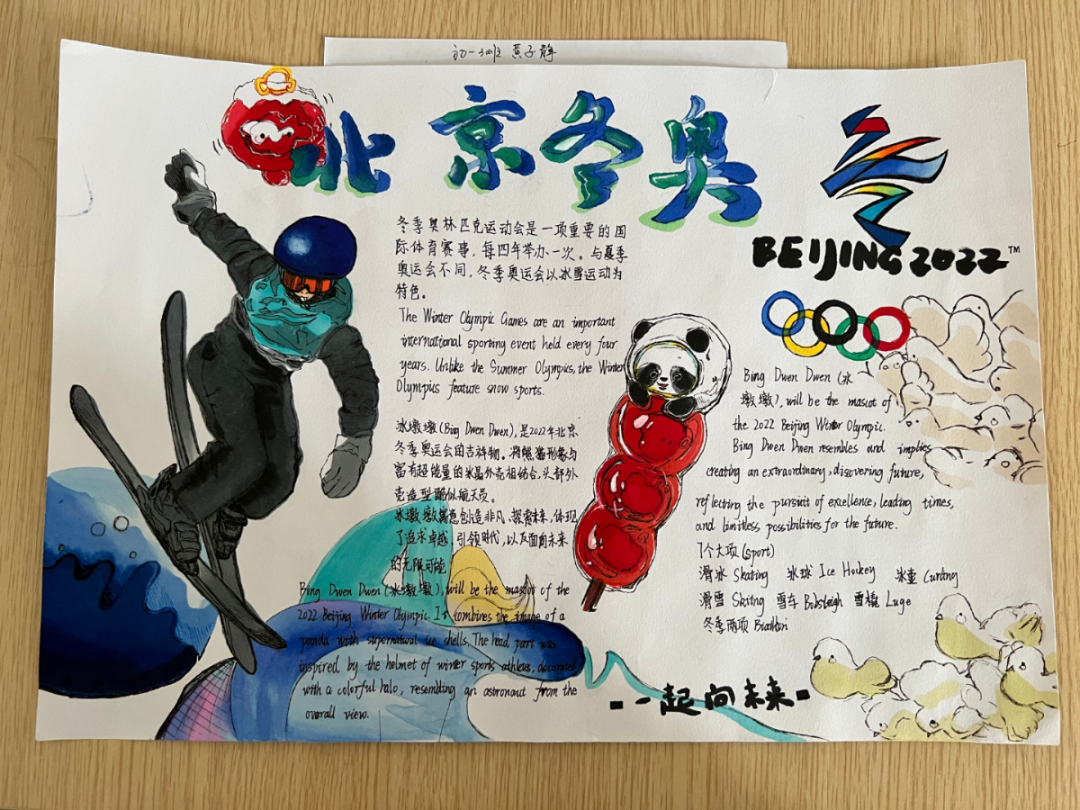 初一3班 黄子静
北京冬奥
BEIJING 2022™
冬季奥林匹克运动会是一项重要的国
际体育赛事，每四年举办一次。与夏季
奥运会不同，冬季奥运会以冰雪运动为
特色。
The Winter Olympic Games are an important
international sporting event held every four
years. Unlike the Summer Olympics, the Winter
Olympics feature snow sports.
冰墩墩(Bing Dwen Dwen),是2022年北京
冬季奥运会的吉祥物。将熊猫形象与
富有超能量的冰晶外壳相结合,头部外
壳造型酷似航天员。
冰墩墩寓意创造非凡、探索未来,体现
了追求卓越、引领时代,以及面向未来
的无限可能
Bing Dwen Dwen (冰墩墩), will be the mascot of the
2022 Beijing Winter Olympic. It combines the image of a
panda with supernatural ice shells. The head part was
inspired by the helmet of winter sports athletes, decorated
with a colorful halo, resembling an astronaut from the
overall view.
Bing Dwen Dwen (冰
墩墩), will be the mascot of
the 2022 Beijing Winter Olympic.
Bing Dwen Dwen resembles and implies
creating an extraordinary, discovering future,
reflecting the pursuit of excellence, leading times,
and limitless possibilities for the future.
7个大项(sport)
滑冰 Skating 冰球 Ice Hockey 冰壶 Curling
滑雪 Skiing 雪车 Bobsleigh 雪橇 Luge
冬季两项
一起向未来